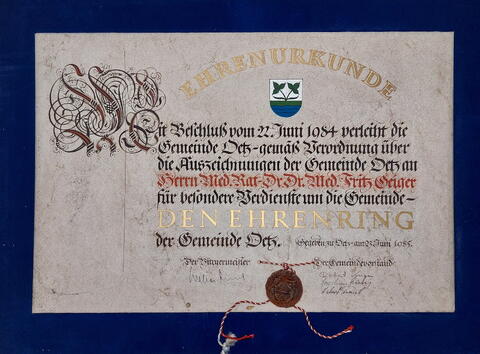 EHRENURKUNDE
Mit Beschluß vom 22. Juni 1984 verleiht die
Gemeinde Oetz - gemäß Verordnung über
die Auszeichnungen der Gemeinde Oetz an
Herrn Med. Rat. Dr. Dr. Med. Fritz Geiger
für besondere Verdienste um die Gemeinde -
DEN EHRENRING
der Gemeinde Oetz.
Gegeben zu Oetz - am 22. Juni 1985.
Der Bürgermeister Der Gemeindevorstand